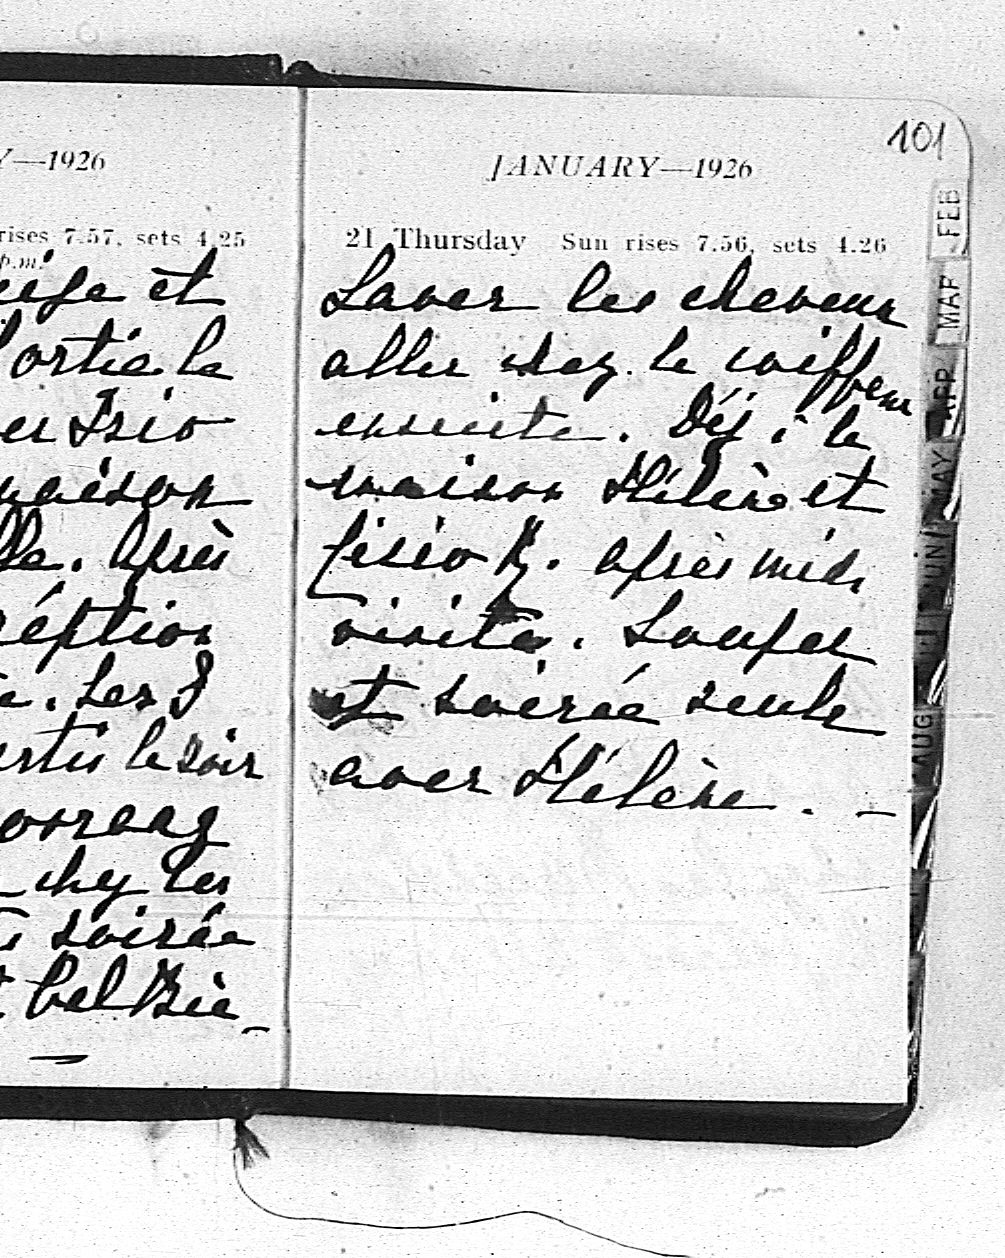 Y—1926
rises 7.57, sets 4.25
p.m.
et
ortie le
Trio
maison
lle. Après
réption
Les
le soir
chez les
soirée
bel
101
JANUARY—1926
21 Thursday Sun rises 7.56, sets 4.26
Laver les cheveux
aller chez le coiffeur
ensuite. Déj. à la
maison Hélène et
après midi
visite. Souper
et soirée seule
avec Hélène. —
FEB
MAR
APR
MAY
JUN
JUL
AUG